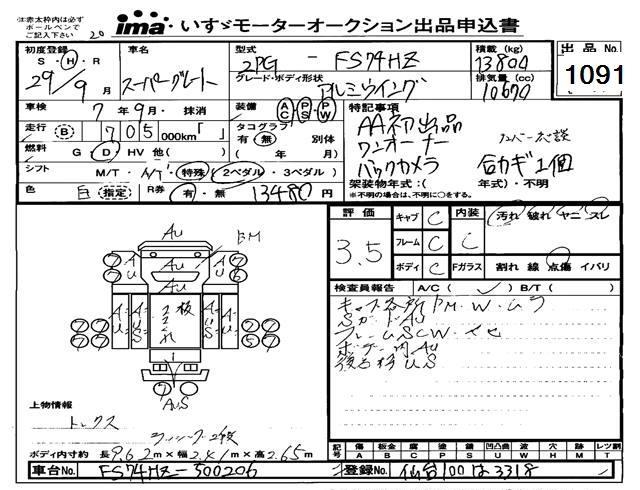 ※赤太枠内は必ず
ボールペンで
ご記入下さい 20
ima いすゞモーターオークション出品申込書
初度登録 S・H・R 29/9月
車名 スーパーグレート
型式 2PG - FS74HZ
グレード・ボディ形状 アルミウイング
積載 (kg) 13800
排気量 (cc) 10670
出品No. 1091
車検 7年9月・抹消
装備 AC PS PW
走行 (B) 705 000km「 」
タコグラフ 有 無 別体
( 年 月)
燃料 G D HV 他( )
シフト M/T・A/T・特殊(2ペダル・3ペダル)
色 白 指定 R券 有・無 13480円
特記事項
AA初出品
ワンオーナー
バックカメラ 合カギ1個
架装物年式:( 年式)・不明
※不明の場合は、不明に○をする。
評価 3.5
キャブ C 内装 C 汚れ 破れ ヤニ スレ
フレーム C
ボディ C Fガラス 割れ 線 点傷 イバリ
検査員報告 A/C( ✓ ) B/T( )
キャブ各所PM・W・ムラ
SガードAU
ボデー内AU
AU BM
AU
AU
板
AUS
上物情報
トレクス
ボディ内寸約 長9.62m×幅2.41m×高2.65m
車台No. FS74HZ-500206
記号 傷 A 板金 B 腐 C 塗 P 錆 S 凹凸曲 U 波 W 穴 H メ M レツ割 T
登録No. 仙台100は3318